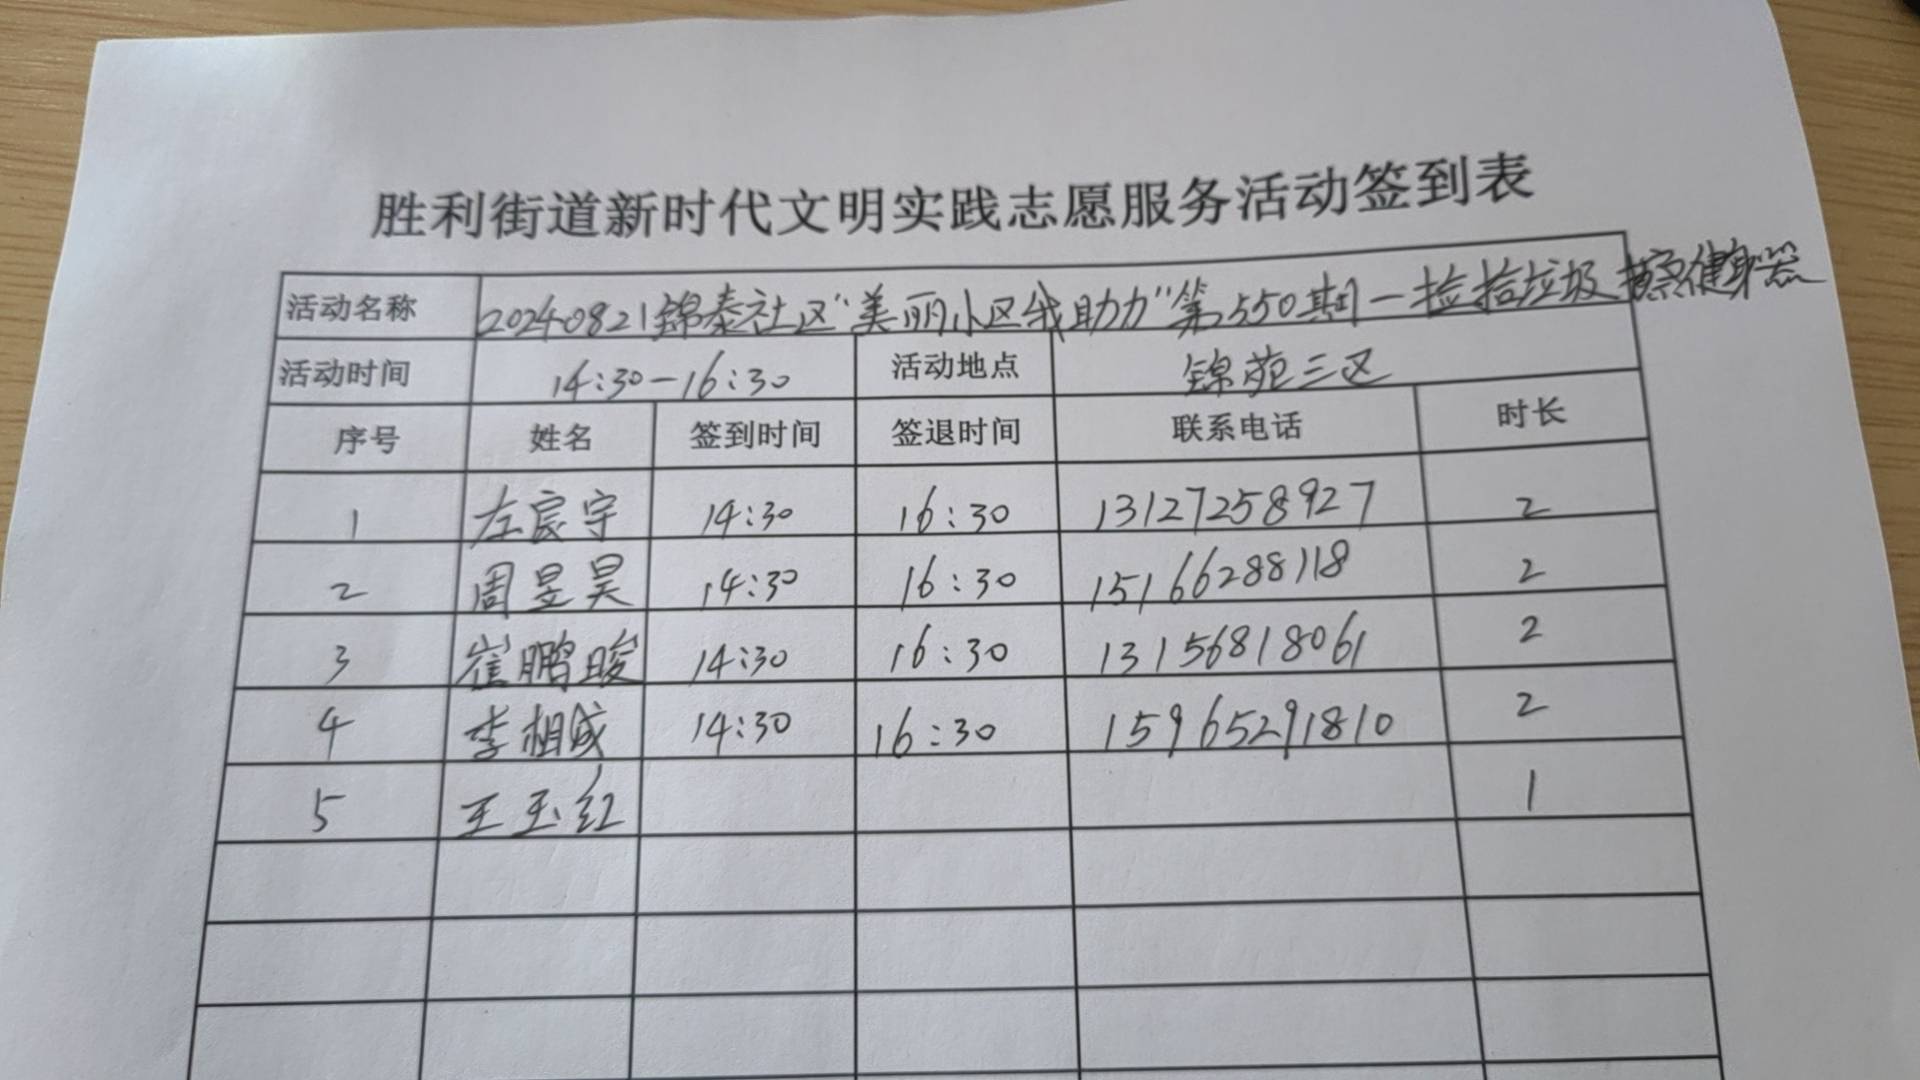 胜利街道新时代文明实践志愿服务活动签到表
活动名称 20240821锦泰社区“美丽小区我助力”第550期—捡拾垃圾擦健身器
活动时间 14:30-16:30 活动地点 锦苑三区
序号 姓名 签到时间 签退时间 联系电话 时长
1 左宸宇 14:30 16:30 13127258927 2
2 周昱昊 14:30 16:30 15166288118 2
3 崔鹏晙 14:30 16:30 13156818061 2
4 李相成 14:30 16:30 15965291810 2
5 王玉红 1